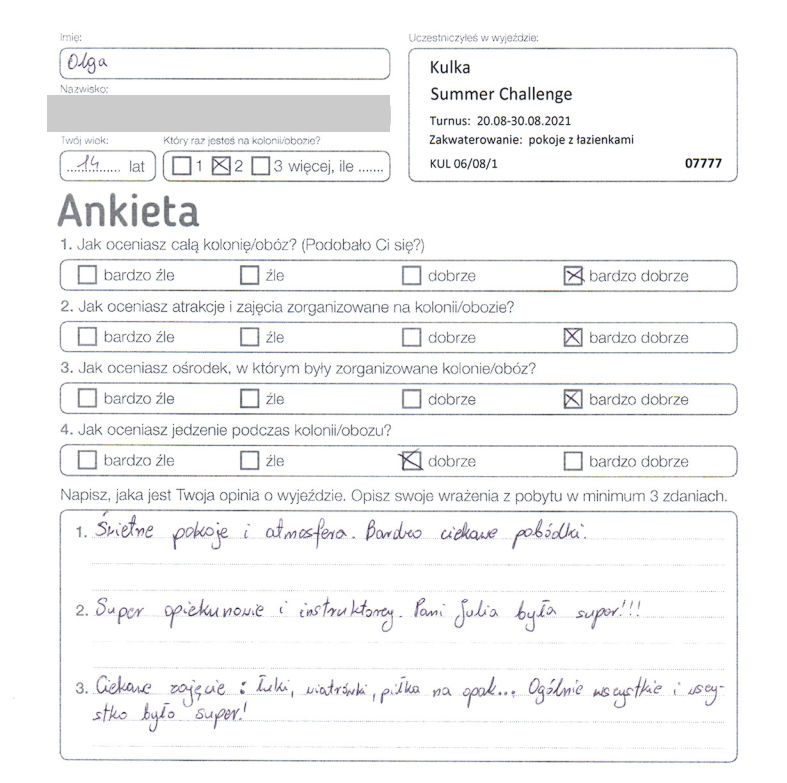 Imię:
Olga
Nazwisko:
Twój wiek:
14 lat
Który raz jesteś na kolonii/obozie?
1 2 3 więcej, ile .......
Uczestniczyłeś w wyjeździe:
Kulka
Summer Challenge
Turnus: 20.08-30.08.2021
Zakwaterowanie: pokoje z łazienkami
KUL 06/08/1 07777
Ankieta
1. Jak oceniasz całą kolonię/obóz? (Podobało Ci się?)
bardzo źle źle dobrze bardzo dobrze
2. Jak oceniasz atrakcje i zajęcia zorganizowane na kolonii/obozie?
bardzo źle źle dobrze bardzo dobrze
3. Jak oceniasz ośrodek, w którym były zorganizowane kolonie/obóz?
bardzo źle źle dobrze bardzo dobrze
4. Jak oceniasz jedzenie podczas kolonii/obozu?
bardzo źle źle dobrze bardzo dobrze
Napisz, jaka jest Twoja opinia o wyjeździe. Opisz swoje wrażenia z pobytu w minimum 3 zdaniach.
1. Świetne pokoje i atmosfera. Bardzo ciekawe pobódki.
2. Super opiekunowie i instruktorzy. Pani Julia była super!!!
3. Ciekawe zajęcie: łuki, wiatrówki, piłka na opak... Ogólnie wszystkie i wszy-
stko było super!